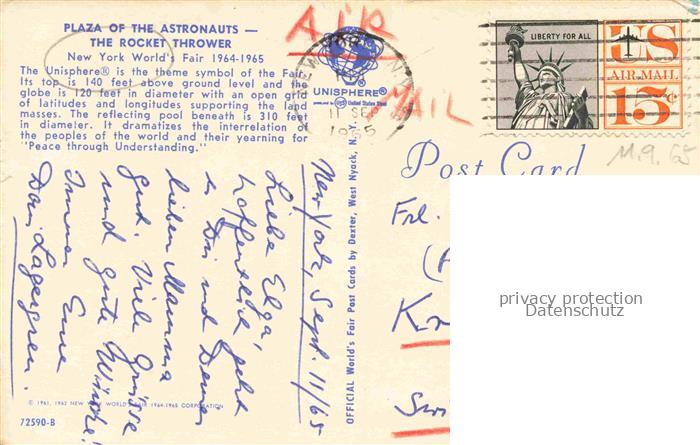 PLAZA OF THE ASTRONAUTS —
THE ROCKET THROWER
New York World's Fair 1964-1965
The Unisphere® is the theme symbol of the Fair.
Its top is 140 feet above ground level and the
globe is 120 feet in diameter with an open grid
of latitudes and longitudes supporting the land
masses. The reflecting pool beneath is 310 feet
in diameter. It dramatizes the interrelation of
the peoples of the world and their yearning for
"Peace through Understanding."
AIR
MAIL
UNISPHERE®
presented by USS United States Steel
NEW YORK, N.Y.
11 SE
1965
LIBERTY FOR ALL
US
AIR MAIL
15¢
11.9.65
Post Card
Frl.
privacy protection
Datenschutz
OFFICIAL World's Fair Post Cards by Dexter, West Nyack, N.Y.
New York, Sept. 11/65
Liebe Elga,
hoffentlich geht
es Dir und Deiner
lieben Mamma
gut. Viele Grüsse
und gute Wünsche!
Immer Eure
Dan Lagergren.
© 1961, 1962 NEW YORK WORLD'S FAIR 1964-1965 CORPORATION
72590-B